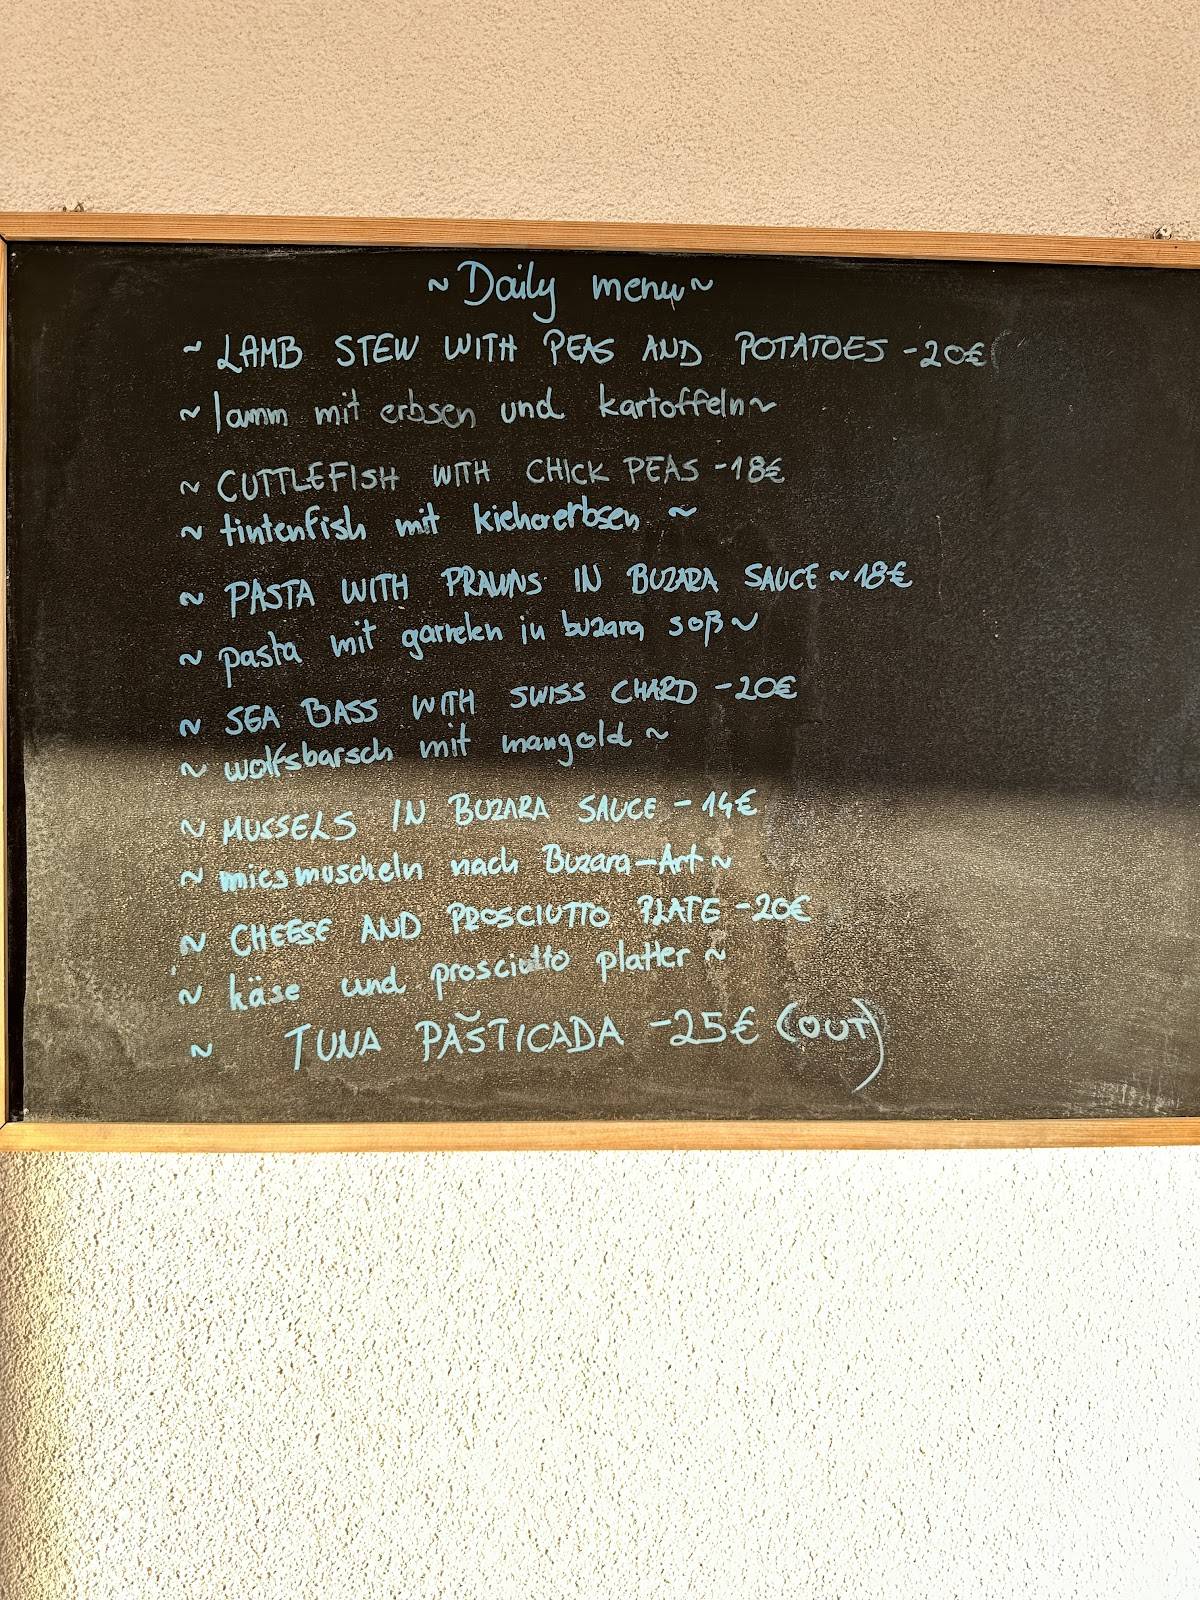 ~Daily menu~
~ LAMB STEW WITH PEAS AND POTATOES -20€
~ lamm mit erbsen und kartoffeln~
~ CUTTLEFISH WITH CHICK PEAS -18€
~ tintenfish mit kichererbsen ~
~ PASTA WITH PRAWNS IN BUZARA SAUCE ~18€
~ pasta mit garnelen in buzara soß~
~ SEA BASS WITH SWISS CHARD -20€
~ wolfsbarsch mit mangold ~
~ MUSSELS IN BUZARA SAUCE - 14€
~ miesmuscheln nach Buzara-Art~
~ CHEESE AND PROSCIUTTO PLATE -20€
~ käse und prosciutto platter ~
~ TUNA PAŠTICADA -25€ (OUT)